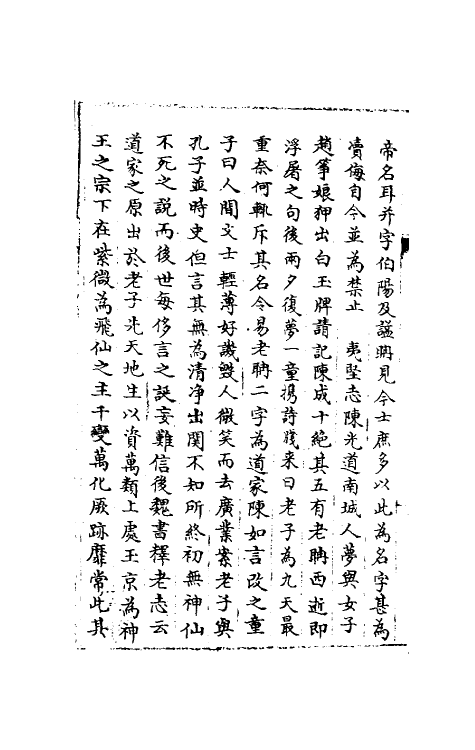 帝名耳并字伯陽及諡聃見今士庶多以此為名字甚為
瀆侮自今並為禁止　夷堅志陳光道南城人夢與女子
趙筝娘狎出白玉牌請記陳成十絕其五有老聃西逝即
浮屠之句後兩夕復夢一童携詩牋来曰老子為九天最
重奈何輒斥其名令易老聃二字為道家陳如言改之童
子曰人間文士輕薄好譏毁人微笑而去廣業案老子與
孔子並時史但言其無為清净出関不知所終初無神仙
不死之說而後世每侈言之誕妄難信後魏書釋老志云
道家之原出於老子先天地生以資萬類上處玉京為神
王之宗下在紫微為飛仙之主千變萬化厥跡靡常此其